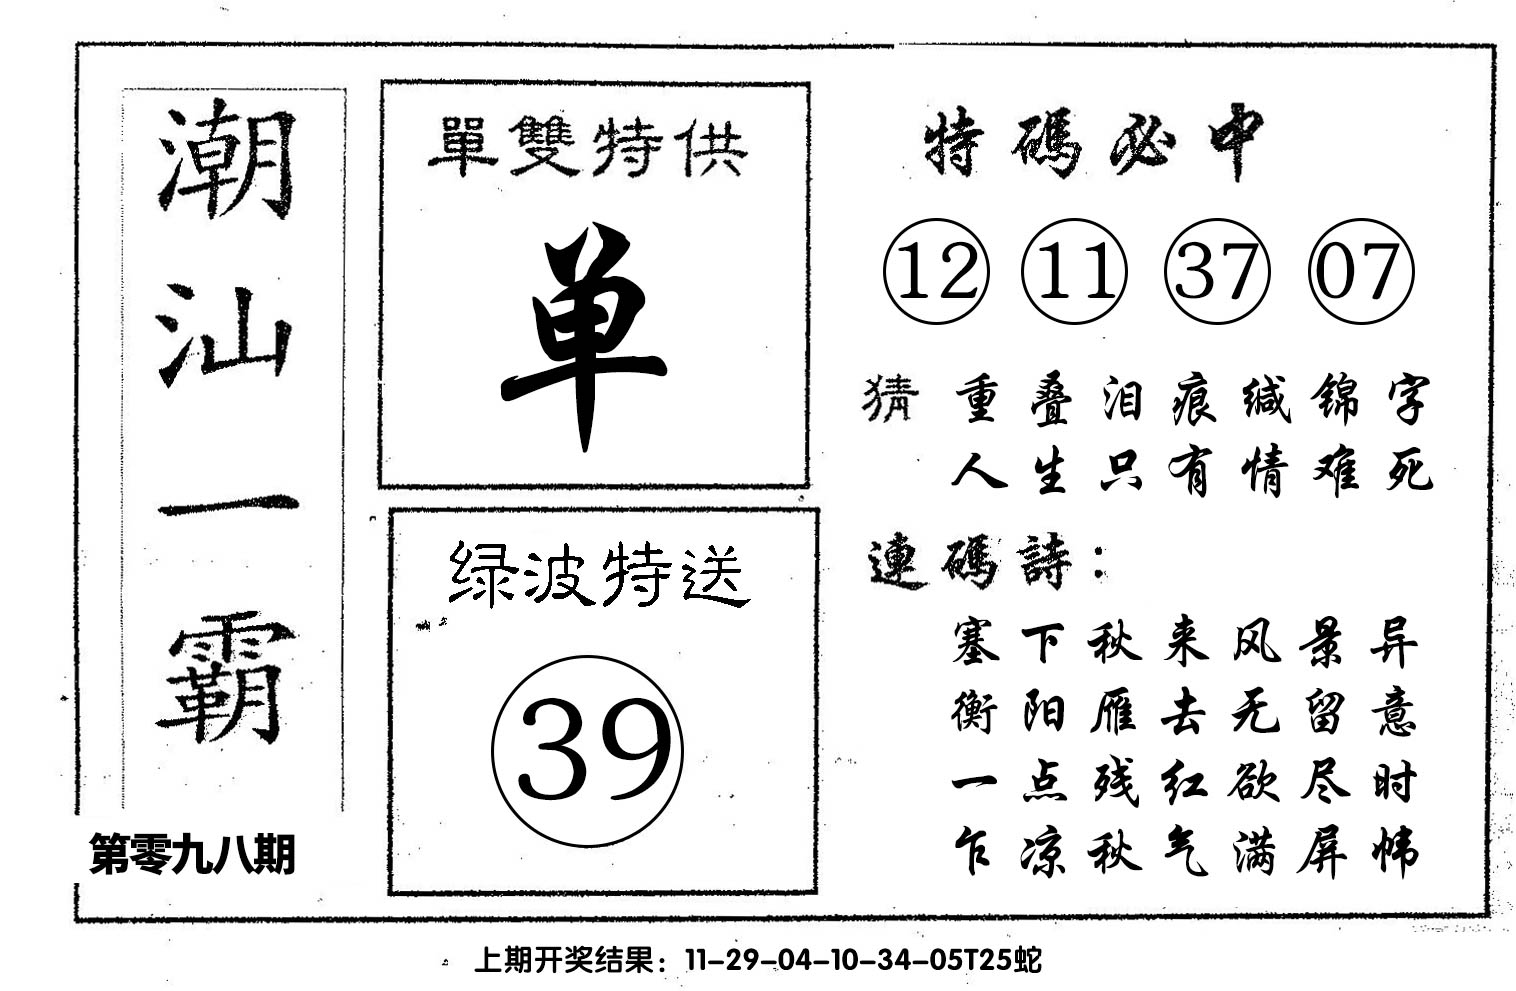 潮汕一霸
第零九八期
單雙特供
单
绿波特送
39
特碼必中
12 11 37 07
猜 重叠泪痕缄锦字
人生只有情难死
連碼詩：
塞下秋来风景异
衡阳雁去无留意
一点残红欲尽时
乍凉秋气满屏帏
上期开奖结果：11-29-04-10-34-05T25蛇